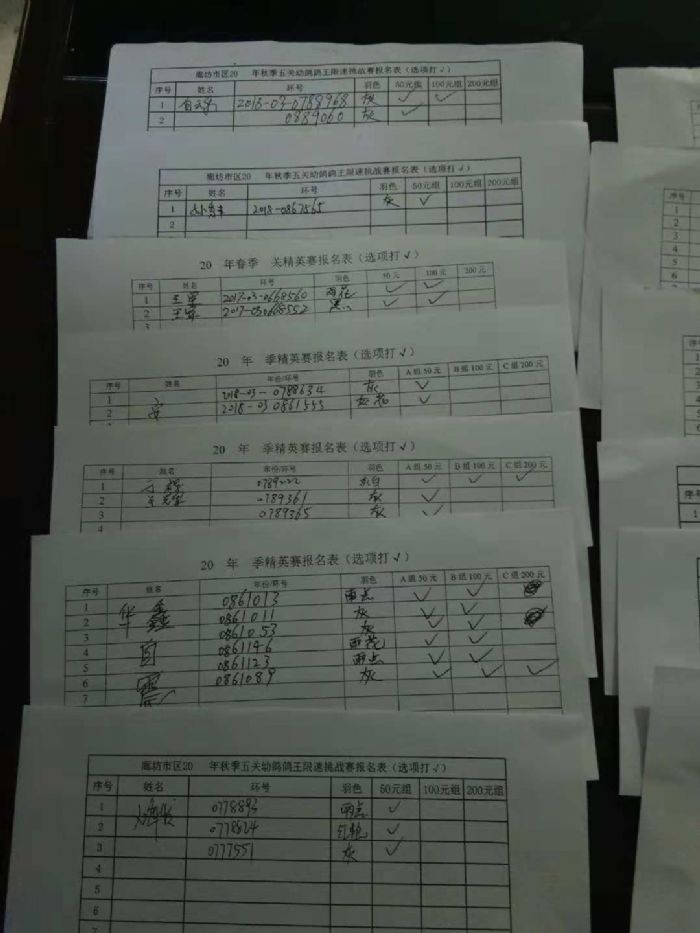 廊坊市区20 年秋季五关幼鸽鸽王限速挑战赛报名表(选项打√)
序号 姓名 环号 羽色 50元组 100元组 200元组
1 2018-03-0788968 灰 √ √
2 0889060 灰 √
廊坊市区20 年秋季五关幼鸽鸽王限速挑战赛报名表(选项打√)
序号 姓名 环号 羽色 50元组 100元组 200元组
1 2018-0867565 灰 √
2
20 年春季 关精英赛报名表(选项打√)
序号 姓名 年份/环号 羽色 50元 100元 200元
1 王军 2017-03-0668560 雨花 √ √
2 王军 2017-030668552 黑 √ √
3
20 年 季精英赛报名表(选项打√)
序号 姓名 年份/环号 羽色 A组50元 B组100元 C组200元
1 2018-03-0788634 灰 √
2 2018-030861555 灰花 √
20 年 季精英赛报名表(选项打√)
序号 姓名 年份/环号 羽色 A组50元 B组100元 C组200元
1 0789222 √ √ √
2 0789361 灰 √
3 0789365 灰 √
4
20 年 季精英赛报名表(选项打√)
序号 姓名 年份/环号 羽色 A组50元 B组100元 C组200元
1 华鑫 0861013 雨点 √ √
2 0861011 灰 √ √
3 0861053 灰 √ √
4 自 0861146 雨花 √ √
5 0861123 雨点 √ √
6 0861089 灰 √ √ √
7
廊坊市区20 年秋季五关幼鸽鸽王限速挑战赛报名表(选项打√)
序号 姓名 环号 羽色 50元组 100元组 200元组
1 0778893 雨点 √
2 0778624 红轮 √
3 0777551 灰 √
4
5
6
7